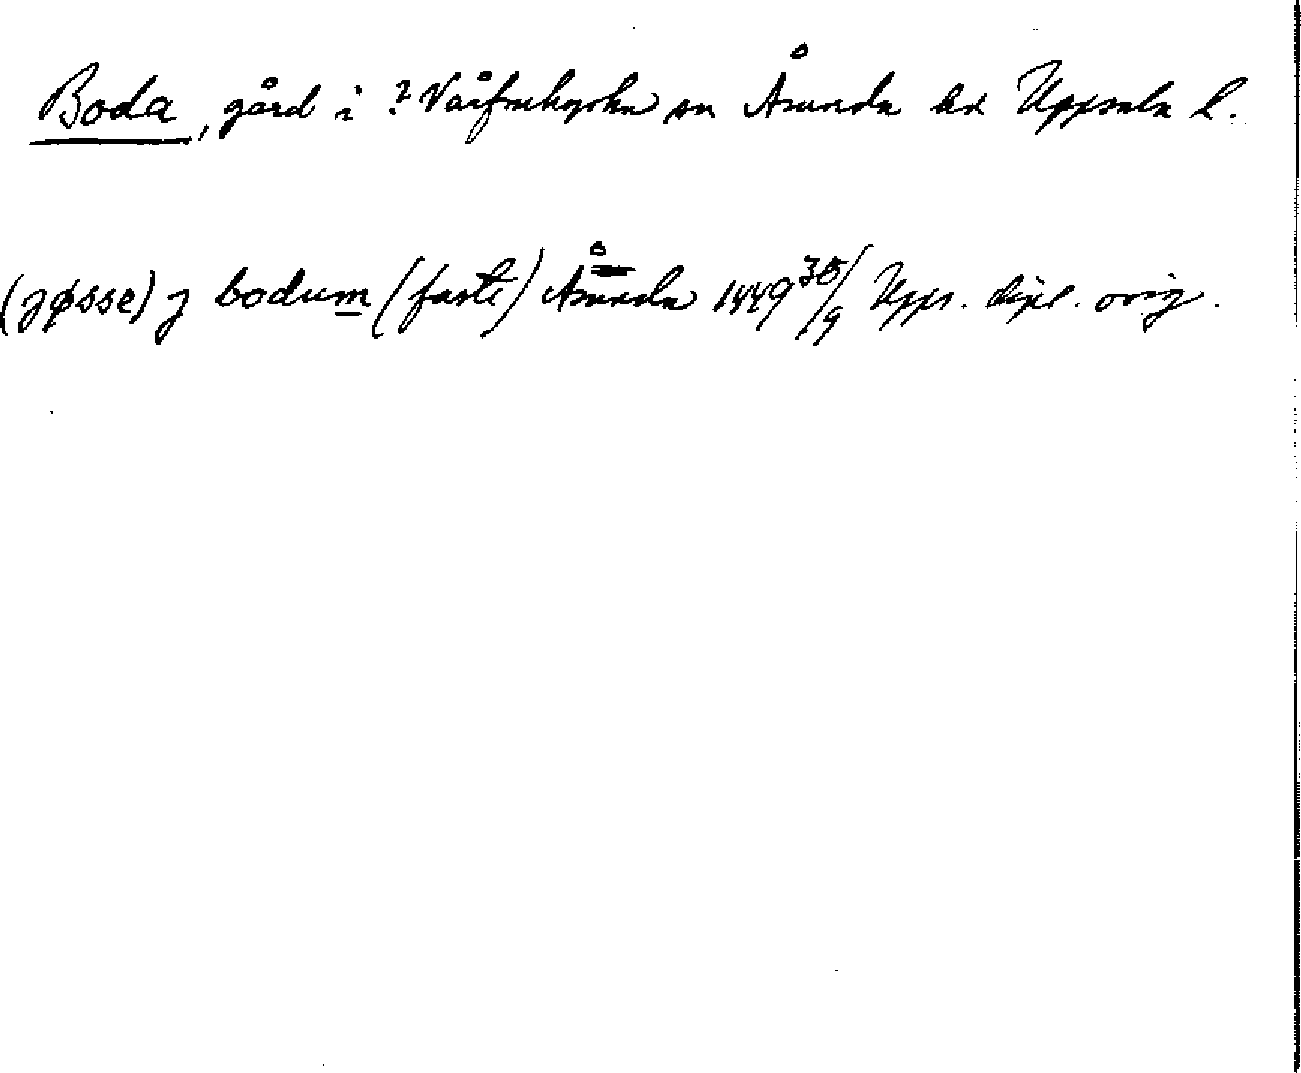 Boda, gård i ? Vårfrukyrka sn Åsunda hd Uppsala l.
(jøsse) j bodum (faste) Åsunda 1449 30/9 Upps. dipl. orig.